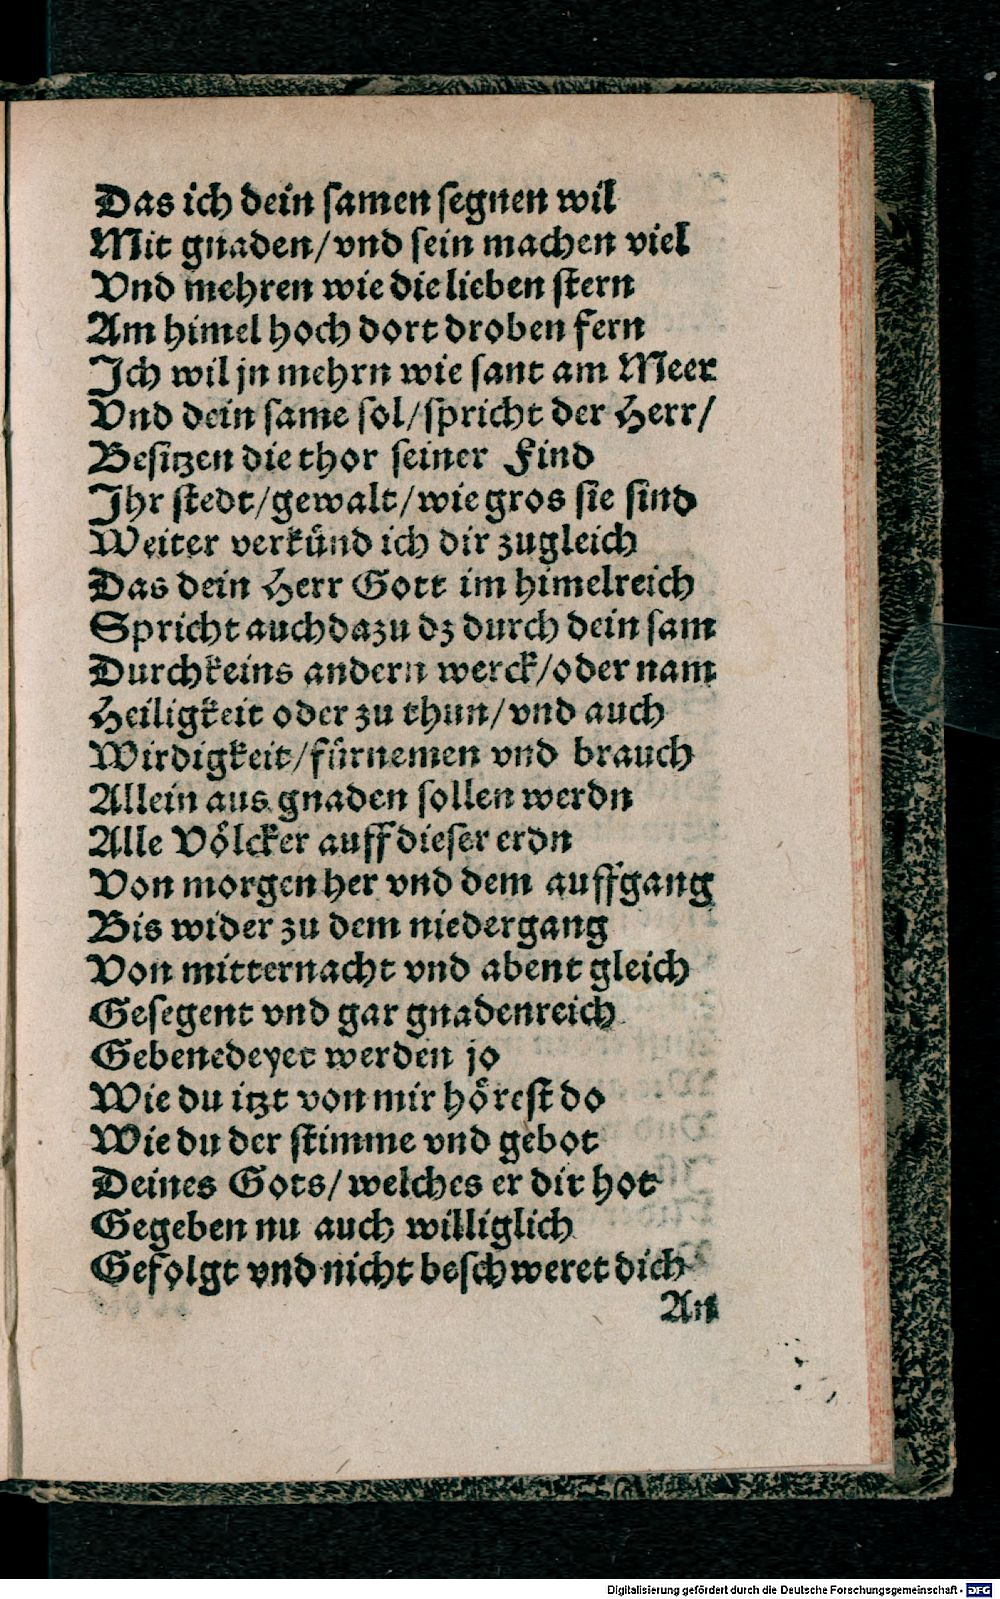 Das ich dein samen segnen wil
Mit gnaden/vnd sein machen viel
Vnd mehren wie die lieben stern
Am himel hoch dort droben fern
Ich wil jn mehrn wie sant am Meer
Vnd dein same sol/spricht der Herr/
Besitzen die thor seiner Find
Ihr stedt/gewalt/wie gros sie sind
Weiter verkünd ich dir zugleich
Das dein Herr Gott im himelreich
Spricht auch dazu dz durch dein sam
Durch keins andern werck/oder nam
Heiligkeit oder zu thun/vnd auch
Wirdigkeit/fürnemen vnd brauch
Allein aus gnaden sollen werdn
Alle Völcker auff dieser erdn
Von morgen her vnd dem auffgang
Bis wider zu dem niedergang
Von mitternacht vnd abent gleich
Gesegent vnd gar gnadenreich
Gebenedeyet werden jo
Wie du itzt von mir hörest do
Wie du der stimme vnd gebot
Deines Gots/welches er dir hot
Gegeben nu auch williglich
Gefolgt vnd nicht beschweret dich
An
Digitalisierung gefördert durch die Deutsche Forschungsgemeinschaft - DFG